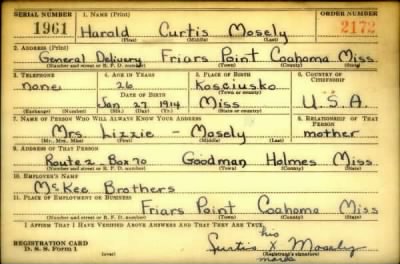 SERIAL NUMBER 1. NAME (Print) ORDER NUMBER
1961 Harold Curtis Mosely 2172
(First) (Middle) (Last)
2. ADDRESS (Print)
General Delivery Friars Point Coahoma Miss.
(Number and street or R. F. D. number) (Town) (County) (State)
3. TELEPHONE 4. AGE IN YEARS 5. PLACE OF BIRTH 6. COUNTRY OF CITIZENSHIP
none 26 Kosciusko
DATE OF BIRTH (Town or county)
Jan 27 1914 Miss U.S.A.
(Exchange) (Number) (Mo.) (Day) (Yr.) (State or country)
7. NAME OF PERSON WHO WILL ALWAYS KNOW YOUR ADDRESS 8. RELATIONSHIP OF THAT PERSON
Mrs. Lizzie - Mosely mother
(Mr., Mrs., Miss) (First) (Middle) (Last)
9. ADDRESS OF THAT PERSON
Route 2 - Box 70 Goodman Holmes Miss.
(Number and street or R. F. D. number) (Town) (County) (State)
10. EMPLOYER'S NAME
McKee Brothers
11. PLACE OF EMPLOYMENT OR BUSINESS
Friars Point Coahoma Miss
(Number and street or R. F. D. number) (Town) (County) (State)
I AFFIRM THAT I HAVE VERIFIED ABOVE ANSWERS AND THAT THEY ARE TRUE.
his
REGISTRATION CARD Curtis X Mosely
D. S. S. Form 1 (Registrant's signature)
(over) mark